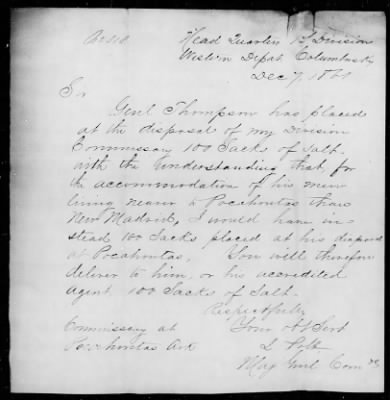 Head Quarters 1st Division
Western Depat. Columbus Ky
Dec 7, 1861
Sir
Genl Thompson has placed
at the disposal of my Division
Commissary 100 Sacks of Salt.
with the understanding that for
the accommodation of his men
living nearer to Pocahontas than
New Madrid, I would have in-
stead 100 Sacks placed at his disposal
at Pocahontas, You will therefore
deliver to him, or his accredited
agent 100 Sacks of Salt.
Respectfully
Your obt Servt
L Polk
Maj Genl Comdg
Commissary at
Pocahontas Ark